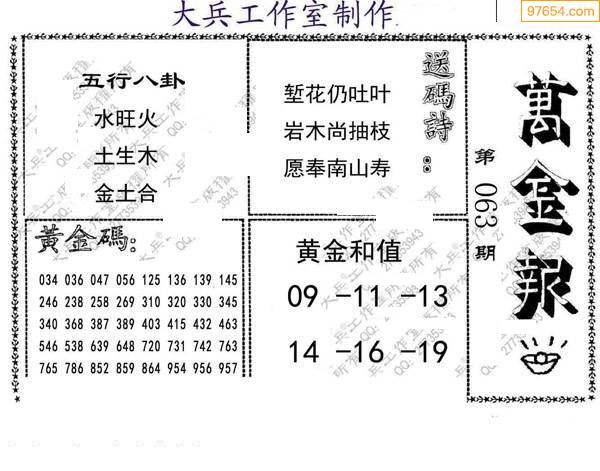 大兵工作室制作
97654.com
五行八卦
水旺火
土生木
金土合
送碼詩：
堑花仍吐叶
岩木尚抽枝
愿奉南山寿
萬金報
第063期
黃金碼：
034 036 047 056 125 136 139 145
246 238 258 269 310 320 330 345
340 368 387 389 403 415 432 463
546 538 639 648 720 731 742 763
765 786 852 859 864 954 956 957
黄金和值
09 -11 -13
14 -16 -19